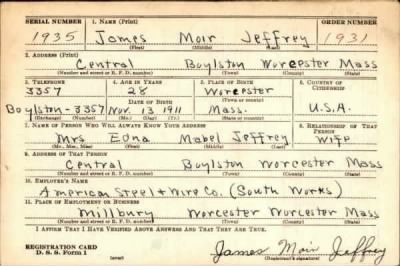 SERIAL NUMBER 1. NAME (Print) ORDER NUMBER
1935 James Moir Jeffrey 1931
(First) (Middle) (Last)
2. ADDRESS (Print)
Central Boylston Worcester Mass
(Number and street or R. F. D. number) (Town) (County) (State)
3. TELEPHONE 4. AGE IN YEARS 5. PLACE OF BIRTH 6. COUNTRY OF CITIZENSHIP
3357 28 Worcester
DATE OF BIRTH (Town or county)
Boylston-3357 Nov. 13 1911 Mass. U.S.A.
(Exchange) (Number) (Mo.) (Day) (Yr.) (State or country)
7. NAME OF PERSON WHO WILL ALWAYS KNOW YOUR ADDRESS 8. RELATIONSHIP OF THAT PERSON
Mrs Edna Mabel Jeffrey Wife
(Mr., Mrs., Miss) (First) (Middle) (Last)
9. ADDRESS OF THAT PERSON
Central Boylston Worcester Mass
(Number and street or R. F. D. number) (Town) (County) (State)
10. EMPLOYER'S NAME
American Steel + Wire Co. (South Works)
11. PLACE OF EMPLOYMENT OR BUSINESS
Millbury Worcester Worcester Mass
(Number and street or R. F. D. number) (Town) (County) (State)
I AFFIRM THAT I HAVE VERIFIED ABOVE ANSWERS AND THAT THEY ARE TRUE.
REGISTRATION CARD
D. S. S. Form 1 (over) James Moir Jeffrey
(Registrant's signature)